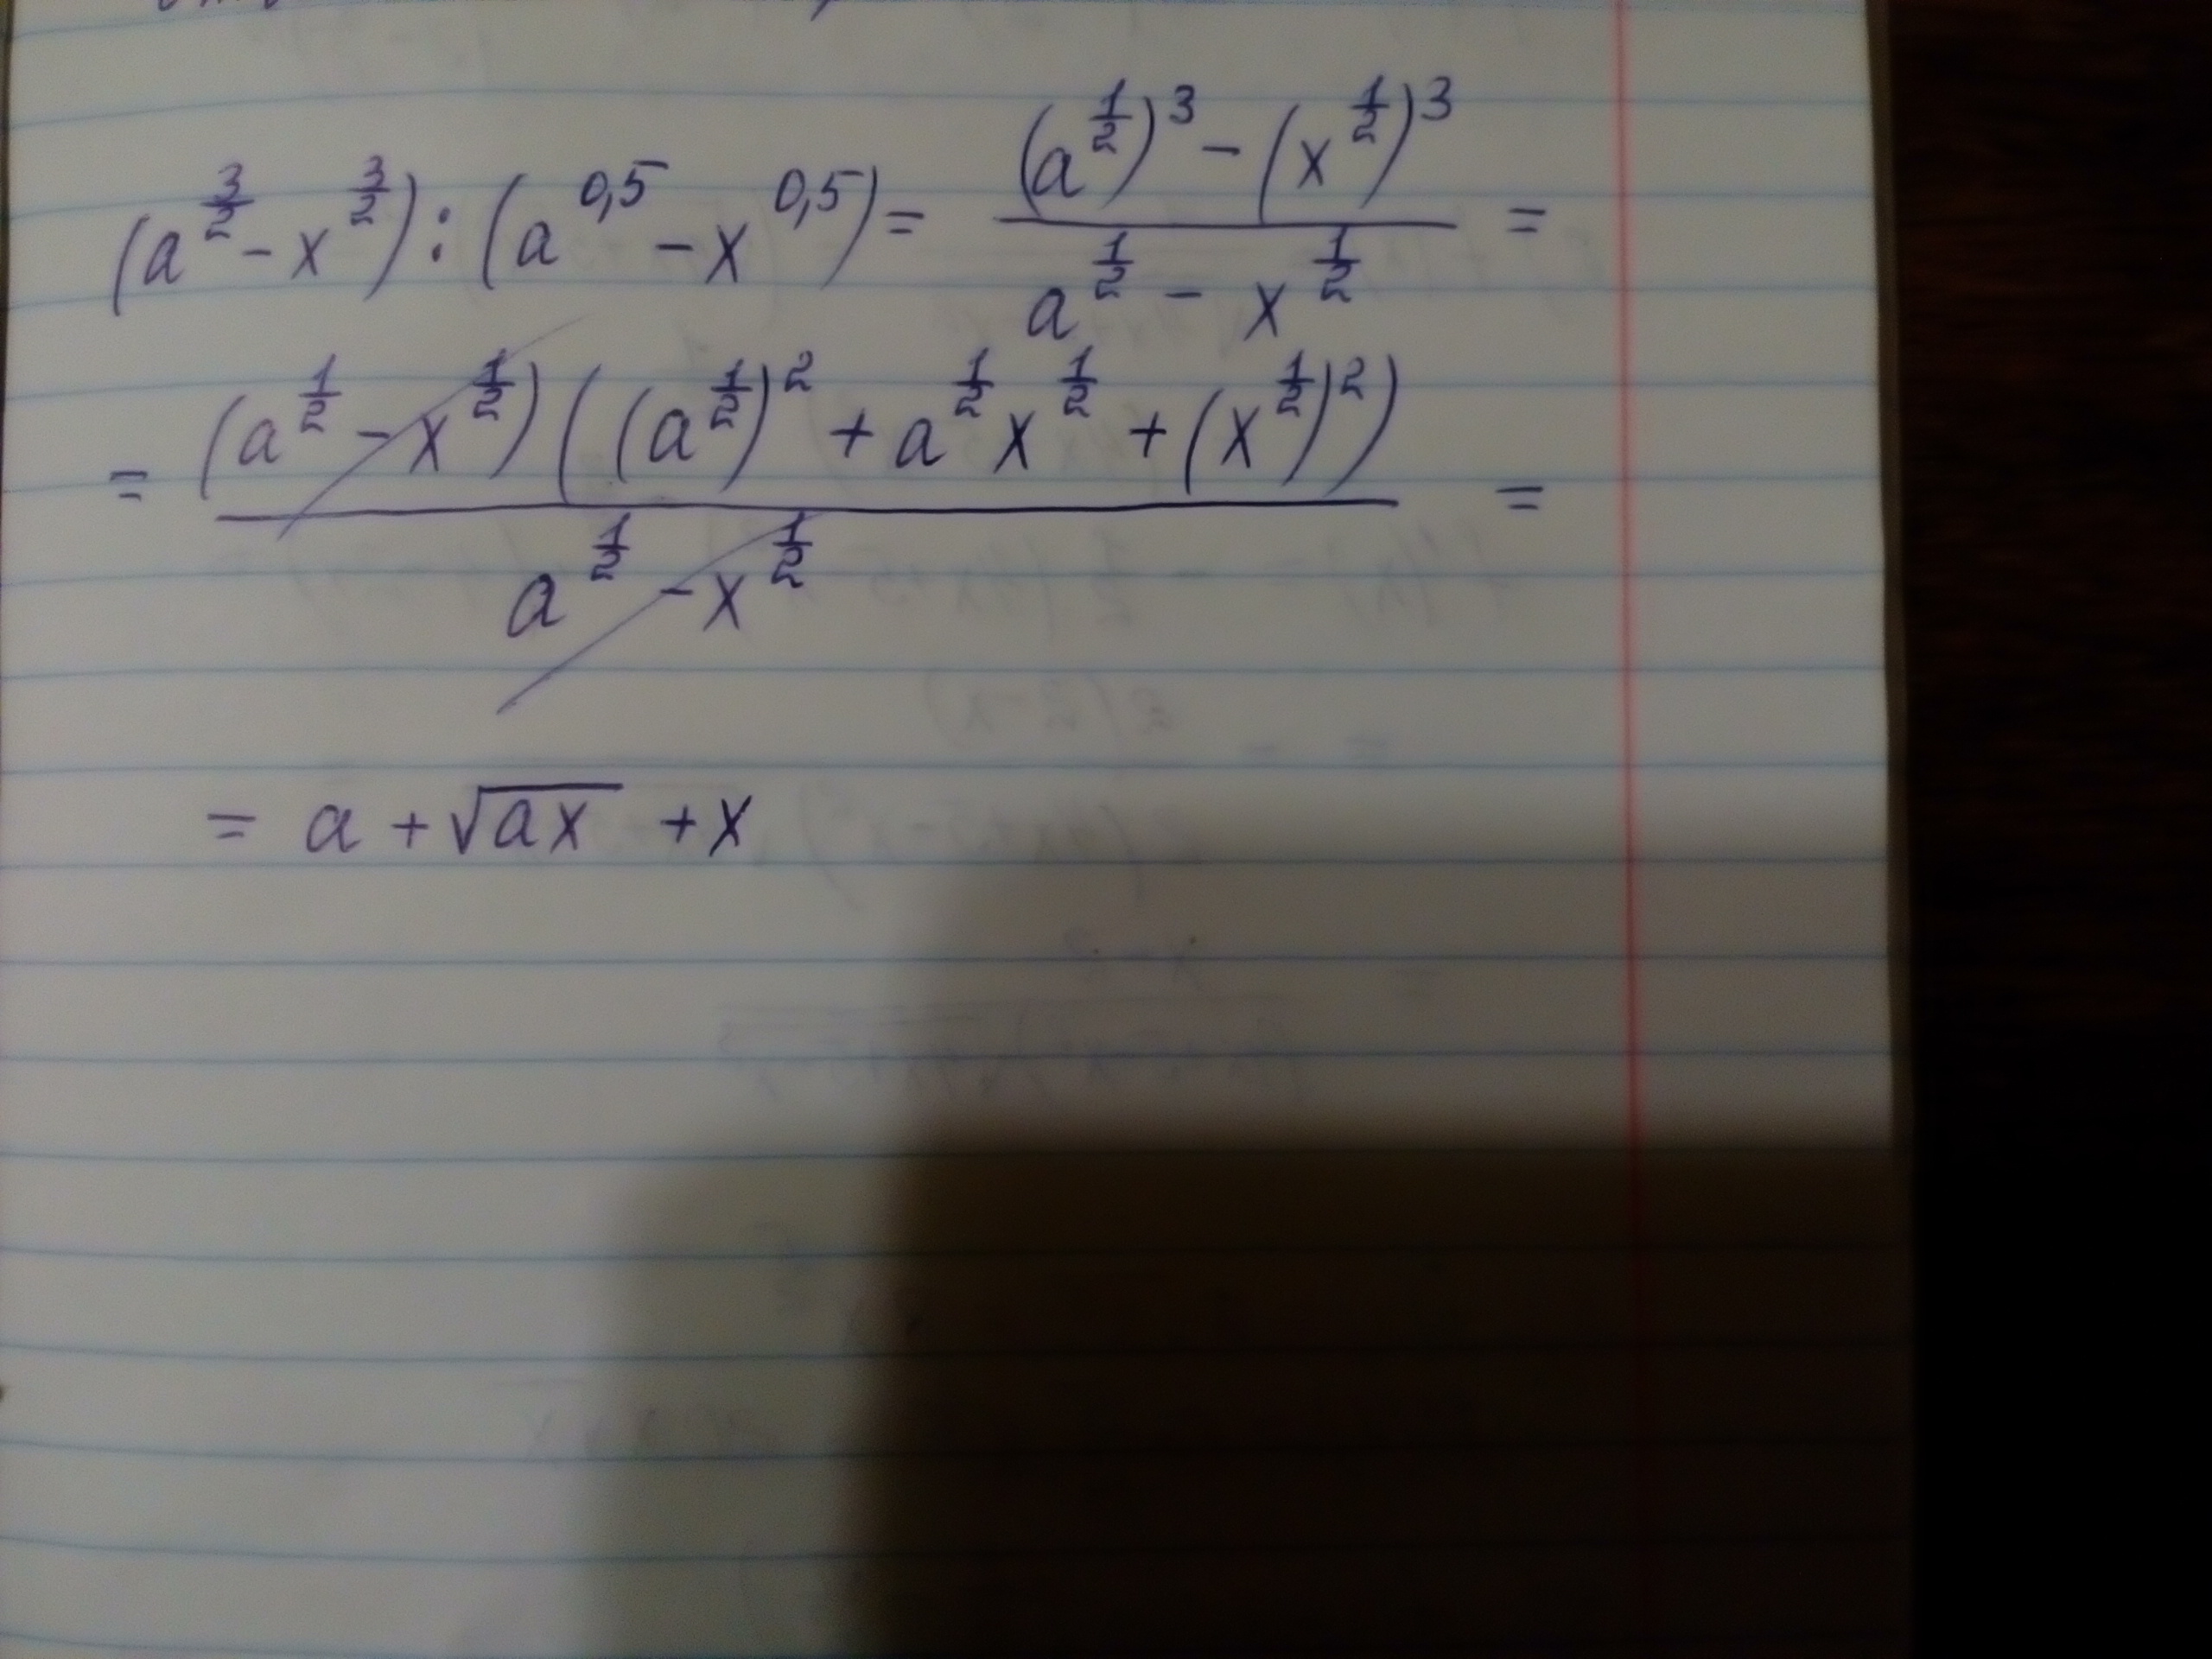 (a^{3/2} - x^{3/2}) : (a^{0,5} - x^{0,5}) = \frac{(a^{1/2})^3 - (x^{1/2})^3}{a^{1/2} - x^{1/2}} =
= \frac{(a^{1/2} - x^{1/2})((a^{1/2})^2 + a^{1/2}x^{1/2} + (x^{1/2})^2)}{a^{1/2} - x^{1/2}} =
= a + \sqrt{ax} + x